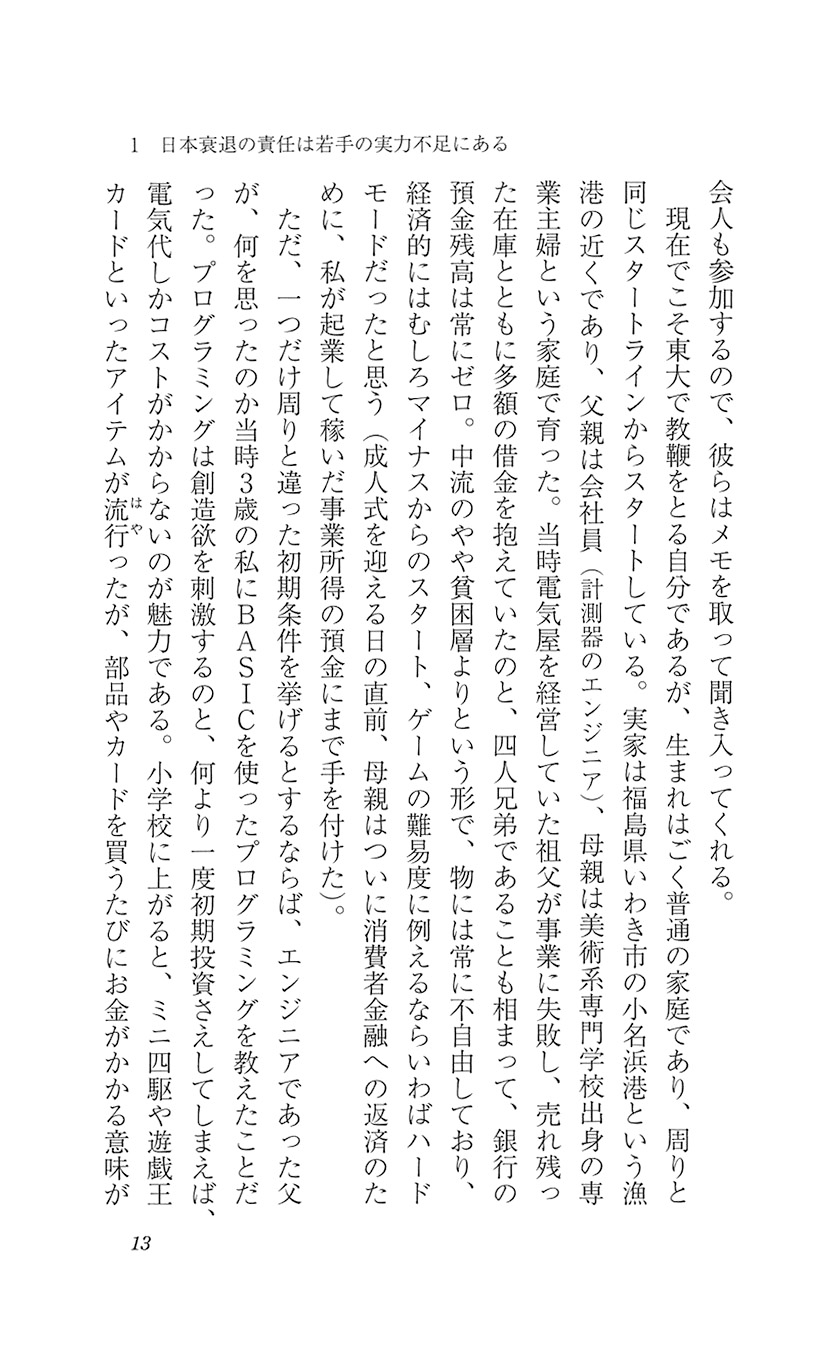 1 日本衰退の責任は若手の実力不足にある
会人も参加するので、彼らはメモを取って聞き入ってくれる。
現在でこそ東大で教鞭をとる自分であるが、生まれはごく普通の家庭であり、周りと
同じスタートラインからスタートしている。実家は福島県いわき市の小名浜港という漁
港の近くであり、父親は会社員（計測器のエンジニア）、母親は美術系専門学校出身の専
業主婦という家庭で育った。当時電気屋を経営していた祖父が事業に失敗し、売れ残っ
た在庫とともに多額の借金を抱えていたのと、四人兄弟であることも相まって、銀行の
預金残高は常にゼロ。中流のやや貧困層よりという形で、物には常に不自由しており、
経済的にはむしろマイナスからのスタート、ゲームの難易度に例えるならいわばハード
モードだったと思う（成人式を迎える日の直前、母親はついに消費者金融への返済のた
めに、私が起業して稼いだ事業所得の預金にまで手を付けた）。
ただ、一つだけ周りと違った初期条件を挙げるとするならば、エンジニアであった父
が、何を思ったのか当時3歳の私にBASICを使ったプログラミングを教えたことだ
った。プログラミングは創造欲を刺激するのと、何より一度初期投資さえしてしまえば、
電気代しかコストがかからないのが魅力である。小学校に上がると、ミニ四駆や遊戯王
カードといったアイテムが流行ったが、部品やカードを買うたびにお金がかかる意味が
はや
13